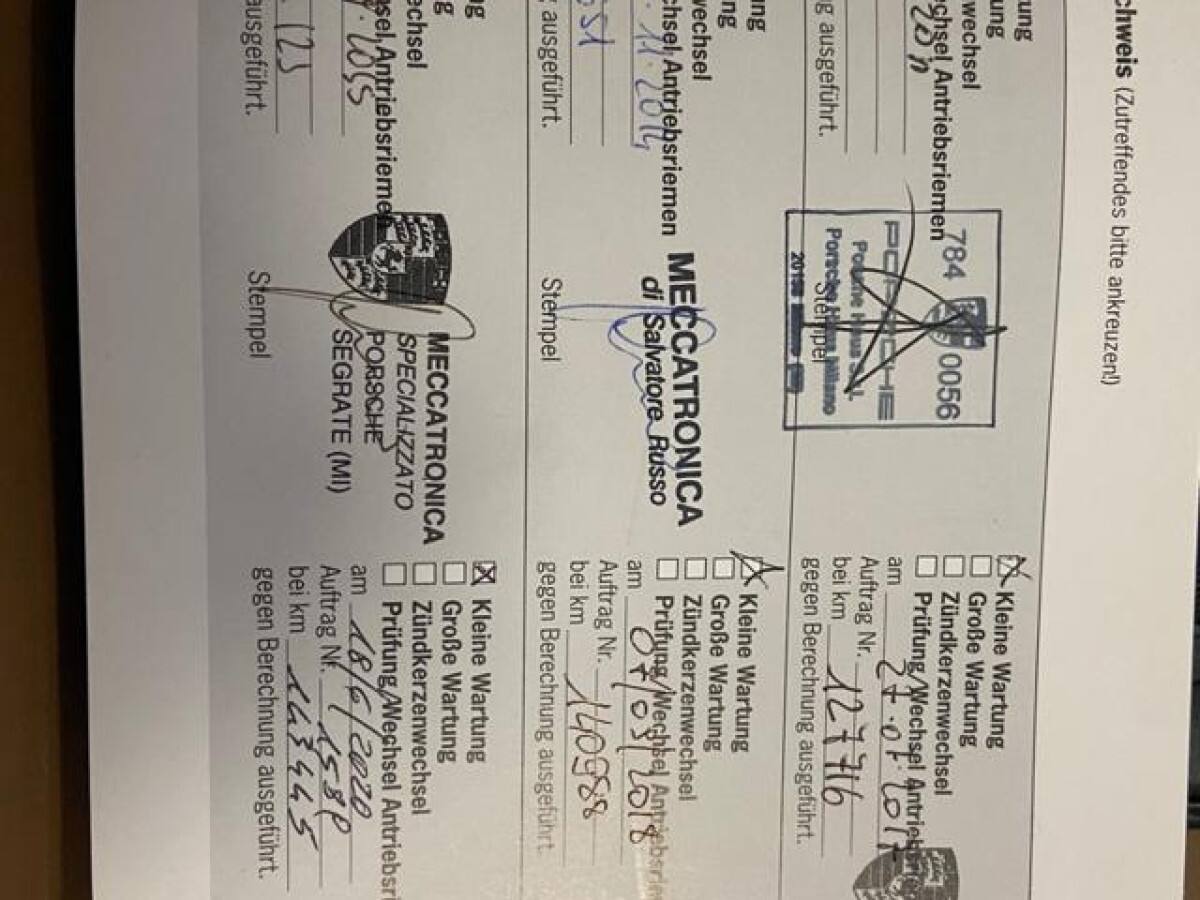 chweis (Zutreffendes bitte ankreuzen!)
tung
ung
wechsel
chsel Antriebsriemen
g ausgeführt.
784 0056
PORSCHE
Stempel
Kleine Wartung
Große Wartung
Zündkerzenwechsel
Prüfung/Wechsel Antriebs
am 27.07.2017
Auftrag Nr.
bei km 127716
gegen Berechnung ausgeführt.
ung
ng
wechsel
chsel Antriebsriemen
.11.2014
g ausgeführt.
MECCATRONICA
di Salvatore Russo
Stempel
Kleine Wartung
Große Wartung
Zündkerzenwechsel
Prüfung/Wechsel Antriebsriem
am 07/05/2018
Auftrag Nr.
bei km 140988
gegen Berechnung ausgeführt.
ng
g
echsel
sel Antriebsrieme
ausgeführt.
MECCATRONICA
SPECIALIZZATO
PORSCHE
SEGRATE (MI)
Stempel
Kleine Wartung
Große Wartung
Zündkerzenwechsel
Prüfung/Wechsel Antriebsri
am 18/6/2020
Auftrag Nr.
bei km 143445
gegen Berechnung ausgeführt.